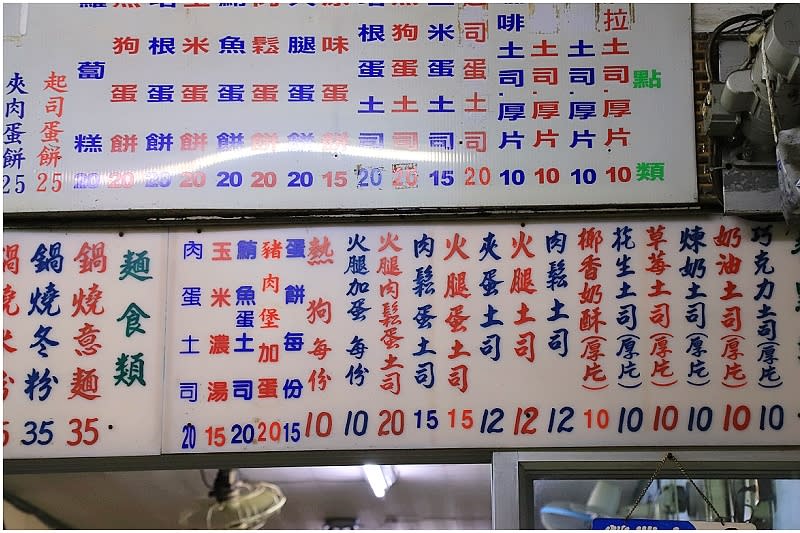 點類
拉土司.厚片 10
土司.厚片 10
土司.厚片 10
啡土司.厚片 10
司蛋土司 20
米蛋土司 15
狗蛋土司 20
根蛋土司 20
味蛋餅 15
腿蛋餅 20
鬆蛋餅 20
魚蛋餅 20
米蛋餅 20
根蛋餅 20
狗蛋餅 20
蔔糕 20
起司蛋餅 25
夾肉蛋餅 25
巧克力土司(厚片) 10
奶油土司(厚片) 10
煉奶土司(厚片) 10
草莓土司(厚片) 10
花生土司(厚片) 10
椰香奶酥(厚片) 10
肉鬆土司 12
火腿土司 12
夾蛋土司 12
火腿蛋土司 15
肉鬆蛋土司 15
火腿肉鬆蛋土司 20
火腿加蛋每份 10
熱狗每份 10
蛋餅每份 15
豬肉堡加蛋 20
鮪魚蛋土司 20
玉米濃湯 15
肉蛋土司 20
麵食類
鍋燒意麵 35
鍋燒冬粉 35